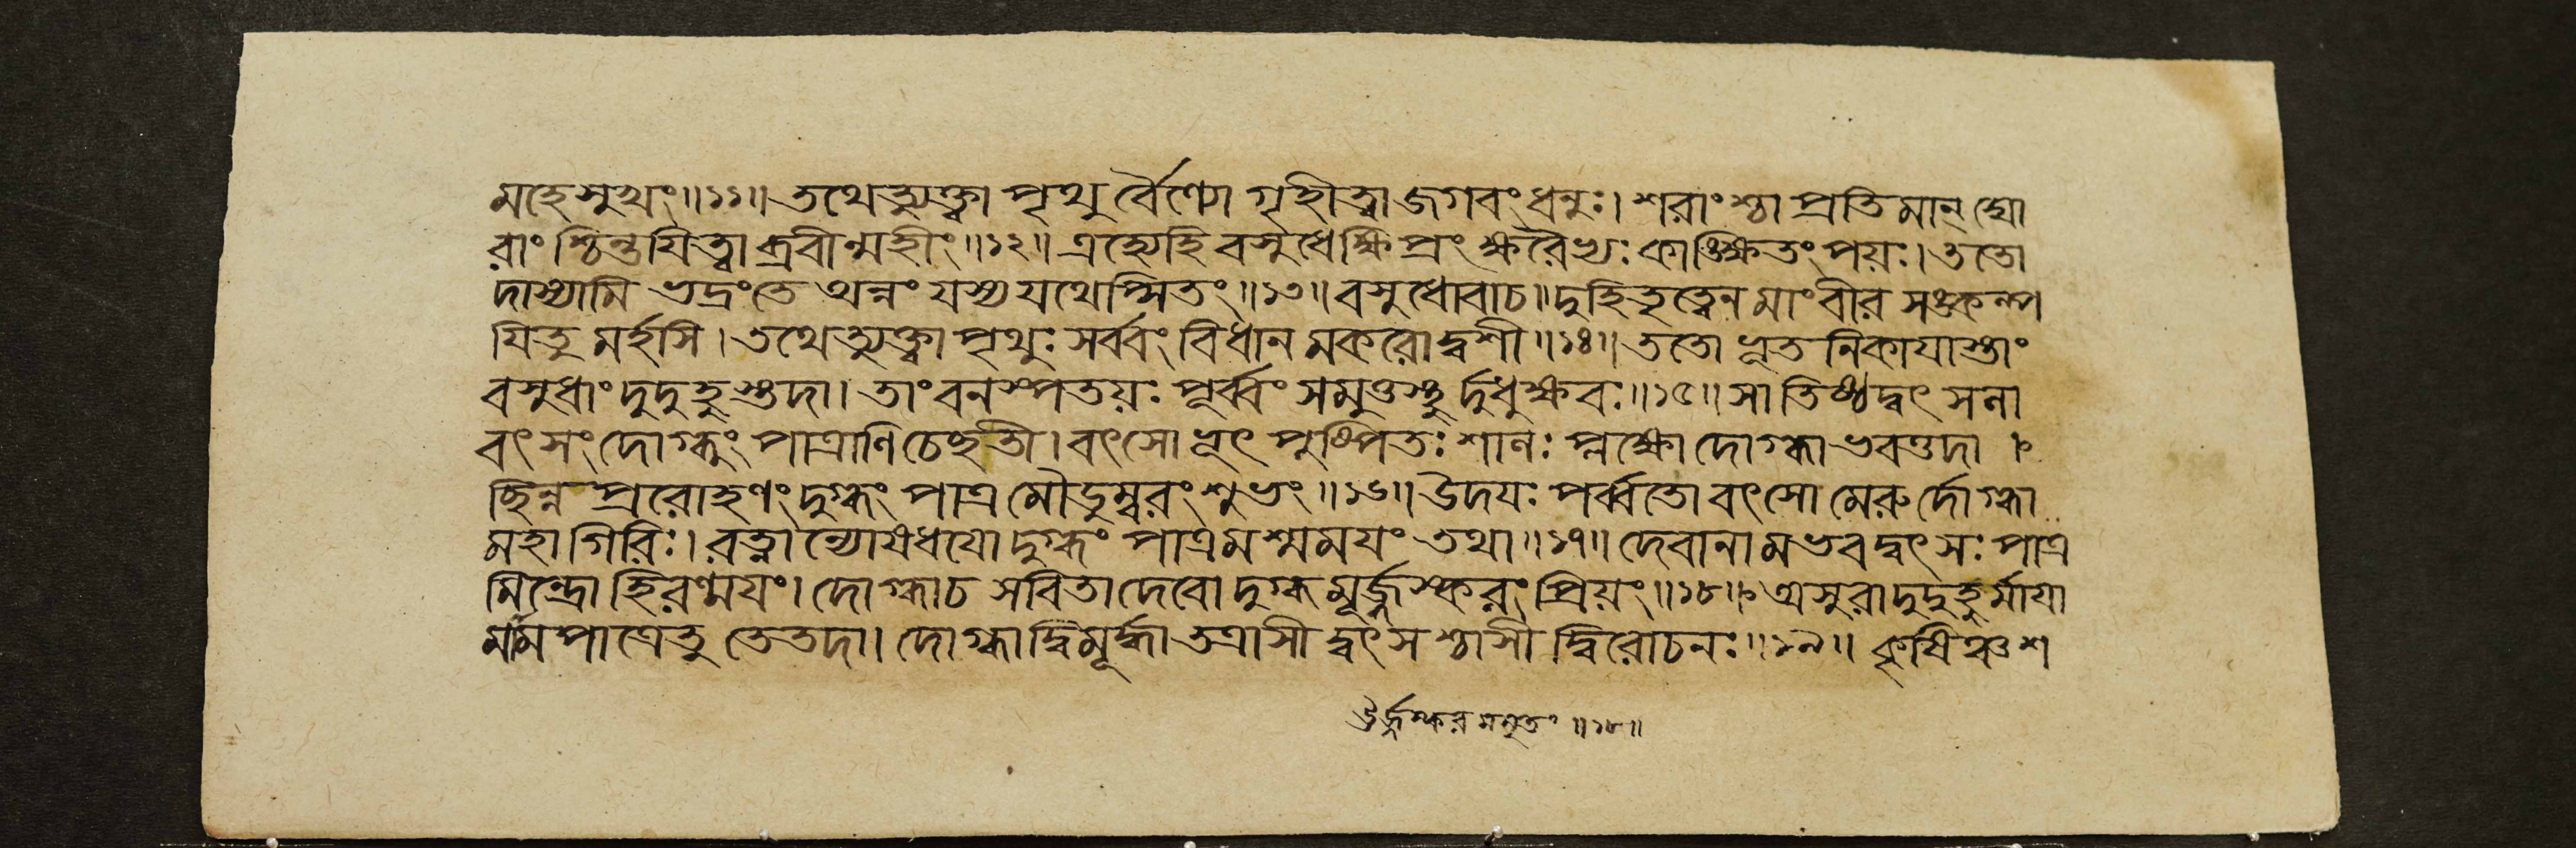 মহে সুখং॥১১॥ তথেত্যুক্ত্বা পৃথুর্বৈণ্যো গৃহীত্বাজগবং ধনুঃ। শরাংশ্চাপ্রতিমান্ ঘো
রাংশ্চিন্তয়িত্বাব্রবীন্মহীং॥১২॥ এহ্যেহি বসুধে ক্ষিপ্রং ক্ষরৈখঃ কাঙ্ক্ষিতং পয়ঃ। ততো
দাস্যামি ভদ্রং তে অন্নং যস্য যথেপ্সিতং॥১৩॥ বসুধোবাচ॥ দুহিতৃত্বেন মাং বীর সঙ্কল্প
য়িতুমর্হসি। তথেত্যুক্ত্বা পৃথুঃ সর্ব্বং বিধানমকরোদ্বশী॥১৪॥ ততো ভূতনিকায়াস্তাং
বসুধাং দুদুহুস্তদা। তাং বনস্পতয়ঃ পূর্ব্বং সমুত্তস্থুর্দুধুক্ষবঃ॥১৫॥ সাতিষ্ঠদ্বৎসলা
বৎসং দোগ্ধৃং পাত্রাণি চেচ্ছতী। বৎসোভূৎ পুষ্পিতঃ শালঃ প্লক্ষো দোগ্ধাভবত্তদা।
ছিন্নপ্ররোহণং দুগ্ধং পাত্রমৌডুম্বরং শুভং॥১৬॥ উদয়ঃ পর্ব্বতো বৎসো মেরুর্দোগ্ধা
মহাগিরিঃ। রত্নান্যোষধয়ো দুগ্ধং পাত্রমশ্মময়ং তথা॥১৭॥ দেবানামভবদ্বৎসঃ পাত্র
মিন্দ্রো হিরণ্ময়ং। দোগ্ধা চ সবিতা দেবো দুগ্ধমূর্জ্জস্করং প্রিয়ং॥১৮॥ অসুরা দুদুহুর্মায়া
মামপাত্রে তু তে তদা। দোগ্ধা দ্বিমূর্দ্ধা তত্রাসীদ্বৎসশ্চাসীদ্বিরোচনঃ॥১৯॥ কৃষিঞ্চ শ
ঊর্জ্জস্করমমৃতং॥১৮॥